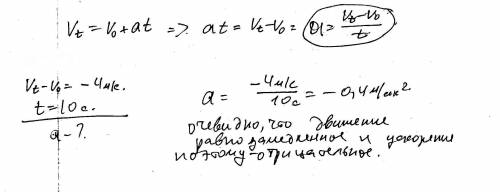 Vt = V0 + at => at = Vt - V0 = a = (Vt - V0)/t
Vt - V0 = -4м/с.
t = 10с.
a - ?
a = -4м/с / 10с = -0,4 м/сек²
очевидно, что движение
равнозамедленное и ускорение
поэтому-отрицательное.